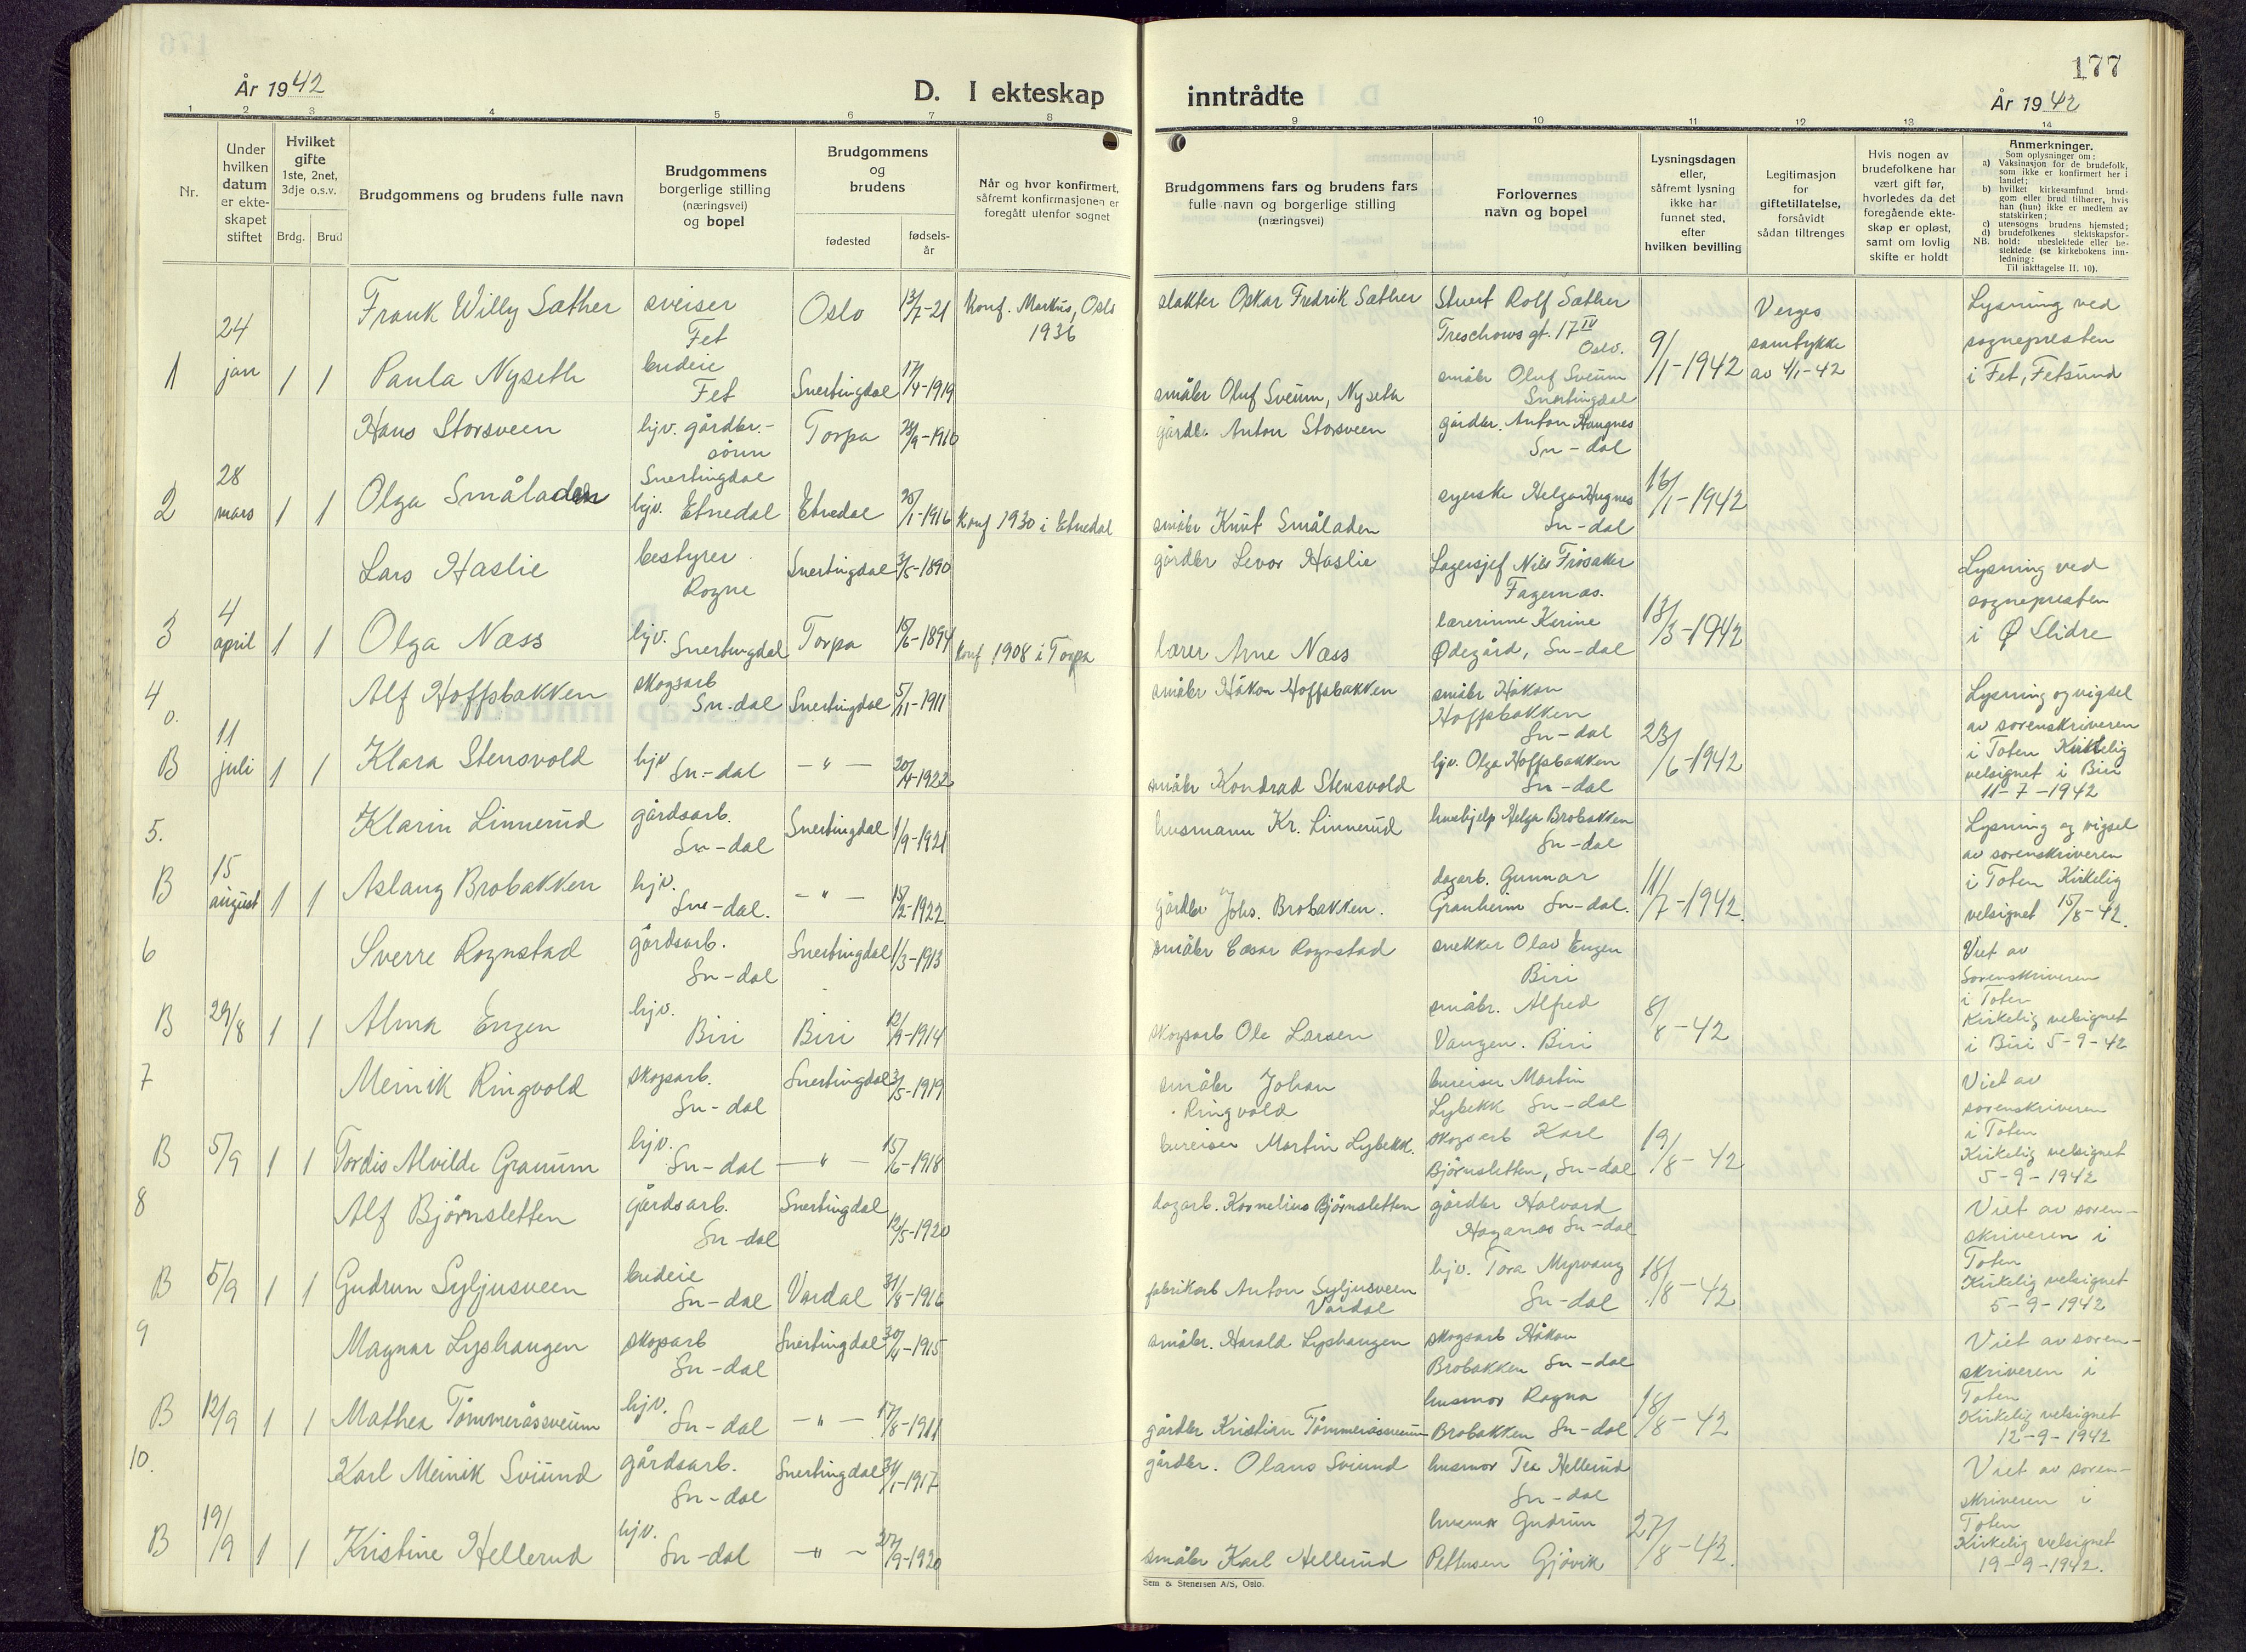 År 1942
D. I ekteskap
1 2 3 4 5 6 7 8
Nr.
Under hvilken datum er ekteskapet stiftet
Hvilket gifte 1ste, 2net, 3dje o.s.v.
Brdg. Brud
Brudgommens og brudens fulle navn
Brudgommens borgerlige stilling (næringsvei) og bopel
Brudgommens og brudens
fødested
fødsels-år
Når og hvor konfirmert, såfremt konfirmasjonen er foregått utenfor sognet
Frank Willy Sæther sveiser Fet Oslo 13/7-21 Konf. Markus, Oslo 1936
1 24 jan 1 1 Paula Nyseth budeie Fet Snertingdal 17/4-1919
Hans Storsveen hjv. gårdbr.-sønn Snertingdal Torpa 28/9-1910
2 28 mars 1 1 Olga Småladen hjv. Etnedal Etnedal 20/1-1916 Konf 1930 i Etnedal
Lars Haslie bestyrer Rogne Snertingdal 3/5-1890
3 4 april 1 1 Olga Næss hjv. Snertingdal Torpa 15/6-1894 Konf 1908 i Torpa
4 o. Alf Hoffsbakken skogsarb Sn-dal Snertingdal 5/11-1911
B 11 juli 1 1 Klara Stensvold hjv Sn-dal -"- 20/4-1922
5. Klarin Linnerud gårdsarb. Sn-dal Snertingdal 1/9-1921
B 15 august 1 1 Aslaug Brobakken hjv. Sn-dal. -"- 15/2-1922
6 Sverre Rognstad gårdsarb. Sn-dal Snertingdal 1/3-1913
B 29/8 1 1 Alma Engen hjv. Biri Biri 12/9-1914
7 Meinik Ringvold skogsarb. Sn-dal Snertingdal 3/5-1919
B 5/9 1 1 Tordis Alvilde Granum hjv. Sn-dal -"- 15/6-1918
8 Alf Bjørnsletten gårdsarb. Sn-dal Snertingdal 12/5-1920
B 5/9 1 1 Gudrun Syljusveen budeie Sn-dal Vardal 31/8-1916
9 Magnar Lyshaugen skogsarb Sn-dal Snertingdal 30/4-1915
B 12/9 1 1 Mathea Tømmeråssveum hjv. Sn-dal -"- 17/8-1911
10. Karl Meinik Sviund gårdsarb. Sn-dal Snertingdal 31/1-1917
B 19/9 1 1 Kristine Hellerud hjv. Sn-dal -"- 27/9-1920
177
inntrådte
År 1942
9 10 11 12 13 14
Brudgommens fars og brudens fars fulle navn og borgerlige stilling (næringsvei)
Forlovernes navn og bopel
Lysningsdagen eller, såfremt lysning ikke har funnet sted, efter hvilken bevilling
Legitimasjon for giftetillatelse, forsåvidt sådan tiltrenges
Hvis nogen av brudefolkene har vært gift før, hvorledes da det foregående ekteskap er opløst, samt om lovlig skifte er holdt
Anmerkninger.
Som oplysninger om:
a) Vaksinasjon for de brudefolk, som ikke er konfirmert her i landet;
b) hvilket kirkesamfund brudgom eller brud tilhører, hvis han (hun) ikke er medlem av statskirken;
c) utensogns brudens hjemsted;
d) brudefolkenes slektskapsforhold: ubeslektede eller beslektede (se kirkebokens innledning:
NB. Til iakttagelse II. 10).
slakter Oskar Fredrik Sæther Stuert Rolf Sæther Treschows gt. 17 IV Oslo.
småbr Oluf Sveum, Nyseth småbr Oluf Sveum Snertingdal 9/1-1942 Verges samtykke av 4/1-42 Lysning ved sognepresten i Fet, Fetsund
gårdb. Anton Storsveen gårdbr. Anton Haugnes Sn-dal
småbr Knut Småladen syerske Helga Sn-dal 16/1-1942
gårdbr Levor Haslie Lagersjef Nils Frøsaker Fagernes.
lærer Arne Næss lærerinne Karine Ødegård, Sn-dal 13/3-1942 Lysning ved sognepresten i Ø Slidre
småbr Håkon Hoffsbakken småbr Håkon Hoffsbakken Sn-dal
småbr Kondrad Stensvold hjv. Olga Hoffsbakken Sn-dal 23/6-1942 Lysning og vigsel av sorenskriveren i Toten Kirkelig velsignet i Biri 11-7-1942
husmann Kr. Linnerud hushjelp Helga Brobakken Sn-dal
gårdbr Johs. Brobakken. dagarb. Gunnar Granheim Sn-dal. 11/7-1942. Lysning og vigsel av sorenskriveren i Toten Kirkelig velsignet 15/8-42.
småbr Cæsar Rognstad snekker Olav Engen Biri
skogsarb Ole Larsen småbr. Alfred Vangen. Biri 8/8-42 Viet av Sorenskriveren i Toten Kirkelig velsignet i Biri 5-9-42
småbr Johan Ringvold bureiser Martin Lybekk Sn-dal
bureiser Martin Lybekk. skogsarb Karl Bjørnsletten, Sn-dal 19/8-42 Viet av sorenskriveren i Toten Kirkelig velsignet 5-9-1942
dagarb. Kornelius Bjørnsletten gårdbr Halvard Sn-dal
fabrikarb Anton Syljusveen Vardal hjv. Tora Myrvang Sn-dal 18/8-42 Viet av sorenskriveren i Toten Kirkelig velsignet 5-9-1942
småbr. Harald Lyshaugen skogsarb Håkon Brobakken Sn-dal
gårdbr Kristian Tømmeråssveum husmor Ragna Brobakken Sn-dal 18/8-42 Viet av sorenskriveren i Toten Kirkelig velsignet 12-9-1942
gårdbr. Olaus Sviund husmor Tea Hellerud Sn-dal
småbr Karl Hellerud husmor Gudrun Pettersen Gjøvik 27/8-42. Viet av sorenskriveren i Toten Kirkelig velsignet 19-9-1942.
Sem & Stenersen A/S, Oslo.